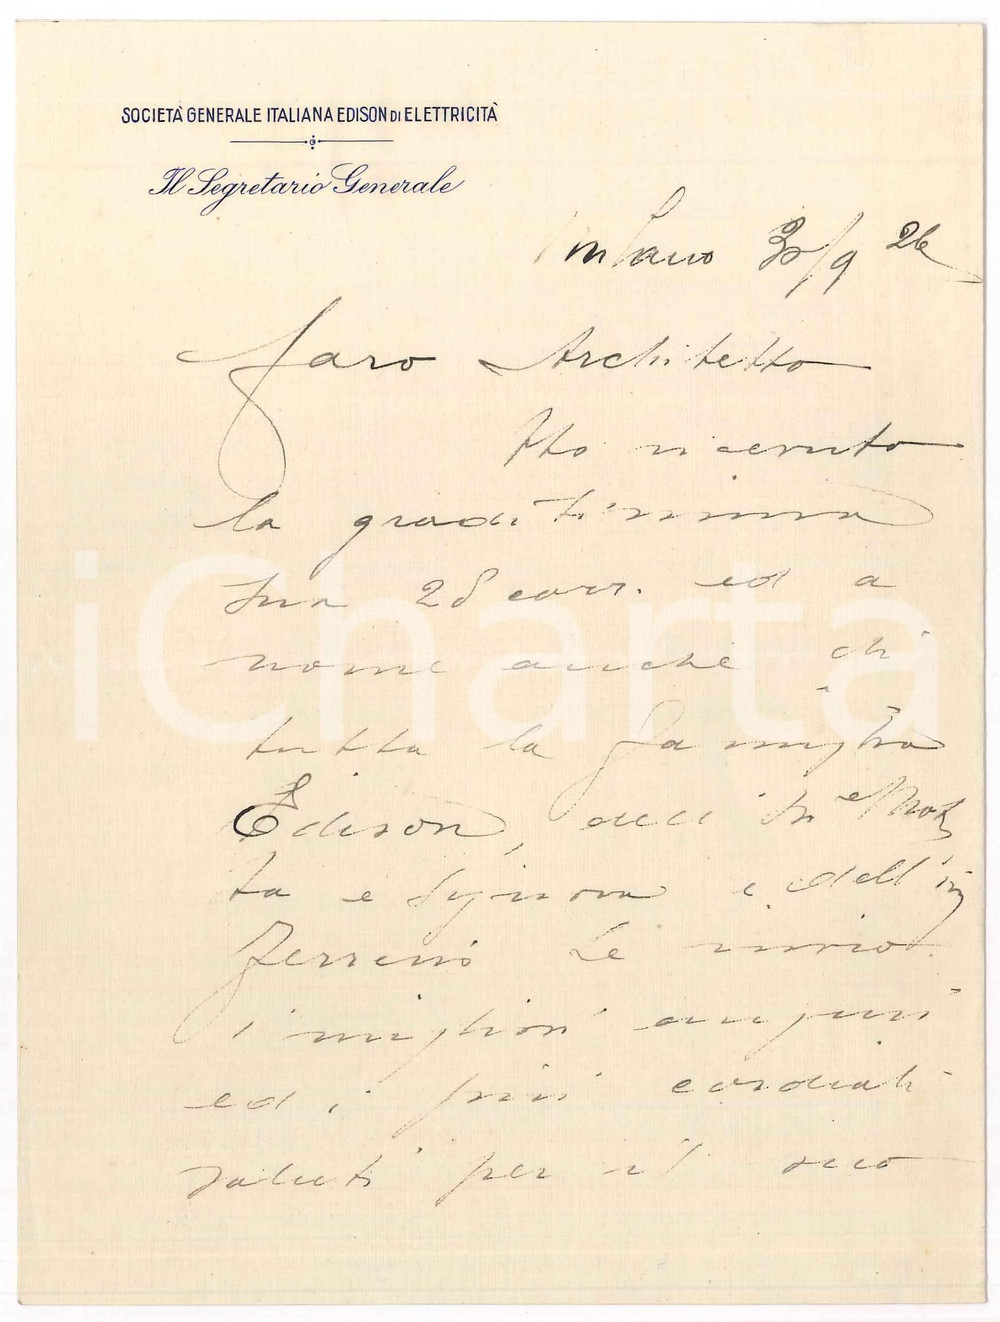 SOCIETÀ GENERALE ITALIANA EDISON DI ELETTRICITÀ
Il Segretario Generale
Milano 30/9 26
Caro Architetto
Ho ricevuto
la graditissima
Sua 28 corr. ed a
nome anche di
tutta la famiglia
Edison, del Motta
e Signora e dell'ing
Ferrerio Le invio
i migliori auguri
ed i più cordiali
saluti per il suo
iCharta